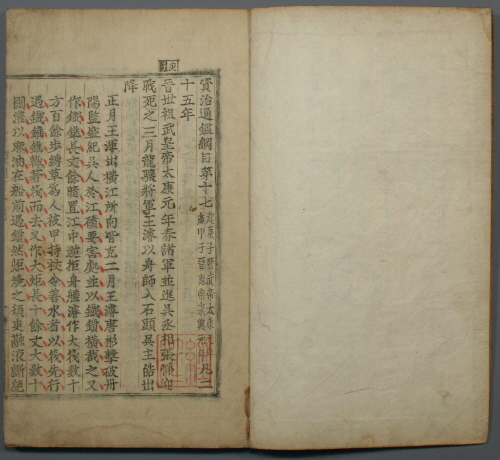 資治通鑑綱目第十七 起庚子晉武帝太康元年 盡甲子晉惠帝永興元年凡二
十五年
晉世祖武皇帝太康元年春諸軍並進吳丞相張悌迎
戰死之三月龍驤將軍王濬以舟師入石頭吳主皓出
降
正月王渾出橫江所向皆克二月王濬唐彬擊破丹
陽監盛紀吳人於江磧要害處並以鐵鎖橫截之又
作鐵錐長丈餘暗置江中逆拒舟艦濬作大筏數十
方百餘步縛草為人被甲持仗令善水者以筏先行
遇鐵錐錐輒著筏而去又作大炬長十餘丈大數十
圍灌以麻油在船前遇鎖然炬燒之須臾融液斷絕